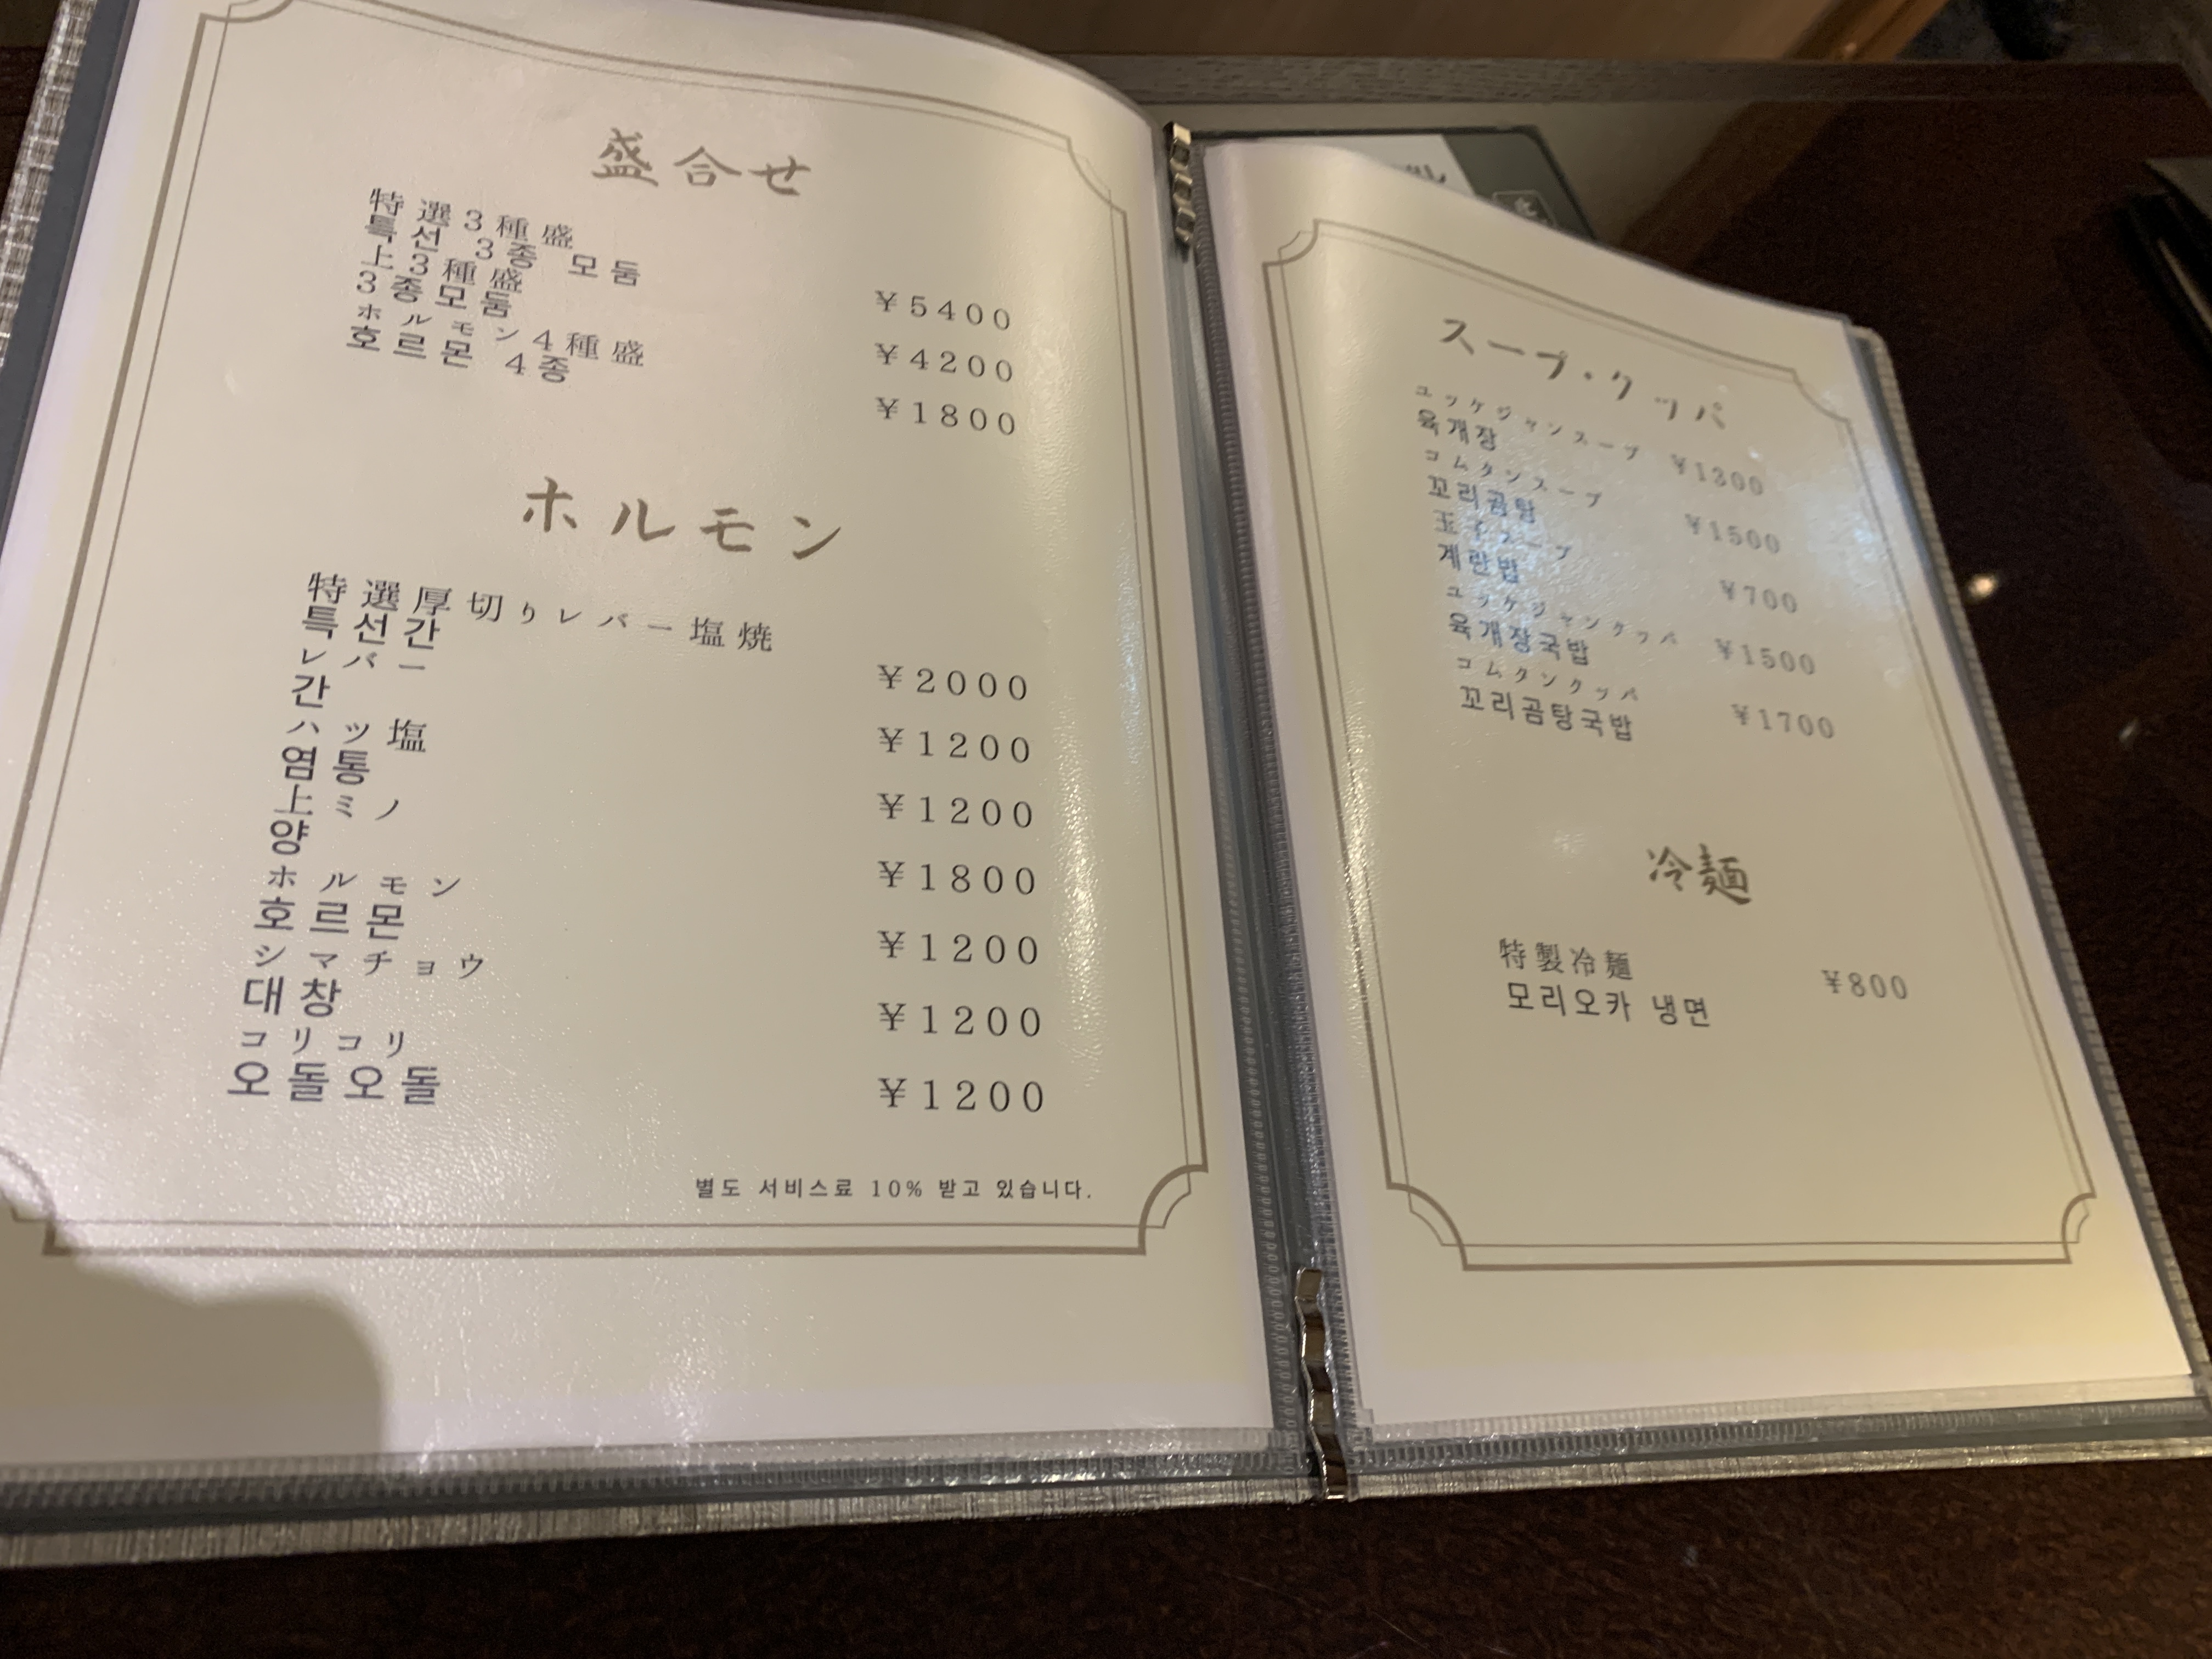 盛合せ
特選3種盛
특선 3종 모둠
¥5400
上3種盛
3종모둠
¥4200
ホルモン4種盛
호르몬 4종
¥1800
ホルモン
特選厚切りレバー塩焼
특선간
¥2000
レバー
간
¥1200
ハツ塩
염통
¥1200
上ミノ
양
¥1800
ホルモン
호르몬
¥1200
シマチョウ
대창
¥1200
コリコリ
오돌오돌
¥1200
별도 서비스료 10% 받고 있습니다.
スープ・クッパ
ユッケジャンスープ ¥1300
육개장
コムタンスープ ¥1500
꼬리곰탕
玉子スープ ¥700
계란밥
ユッケジャンクッパ ¥1500
육개장국밥
コムタンクッパ ¥1700
꼬리곰탕국밥
冷麺
特製冷麺 ¥800
모리오카 냉면